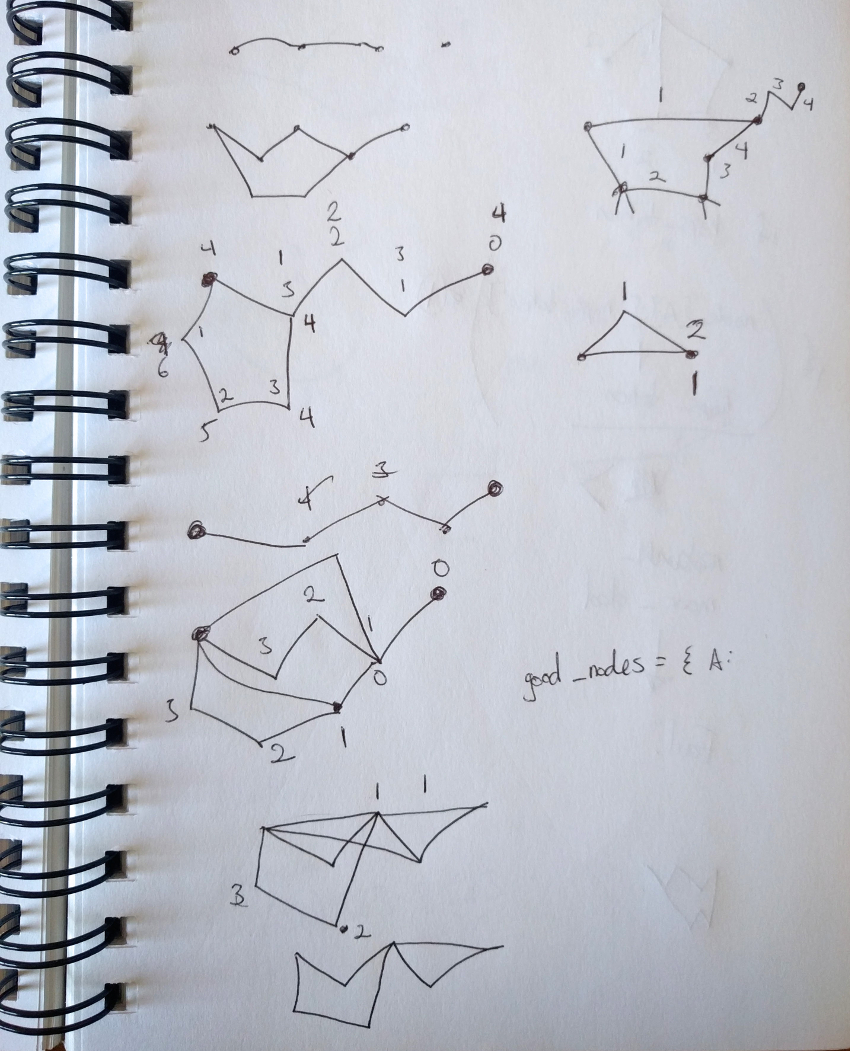 1
2 3 4
1 4
2 3
2
4 1 2 3 4
3 1 0
4
1
6
2 3
5 4
1
2
1
4 3
0
2 1
3
0
3
1
2
good _nodes = { A:
1 1
3
2